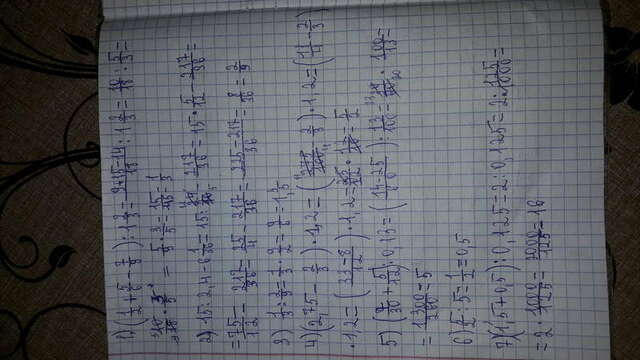 1) (1/2 + 5/6 - 7/9) : 1 2/3 = (9+15-14)/18 : 1 2/3 = 10/18 : 5/3 =
10/18 · 3/5 = 5/9 · 3/5 = 15/45 = 1/3
2) 15 : 2,4 - 6 1/36 = 15 : 24/10 - 217/36 = 15 · 5/12 - 217/36 =
= 75/12 - 217/36 = 25/4 - 217/36 = (225-217)/36 = 8/36 = 2/9
3) 1/3 : 2/9 = 1/3 · 9/2 = 9/6 = 1,5
4) (2,75 - 2/3) · 1,2 = (275/100 - 2/3) · 1,2 = (11/4 - 2/3)
· 1,2 = (33-8)/12 · 1,2 = 25/12 · 12/10 = 5/2
5) (7/30 + 5/12) : 0,13 = (14+25)/60 : 13/100 = 39/60 · 100/13 =
= 1300/260 = 5
6) 5/2 : 5 = 1/2 = 0,5
7) (1,5 + 0,5) : 0,125 = 2 : 0,125 = 2 : 125/1000 =
= 2 · 1000/125 = 2000/125 = 16